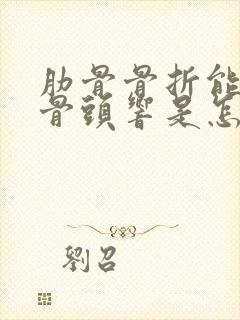 肋骨骨折能
骨頭響是怎
劉召